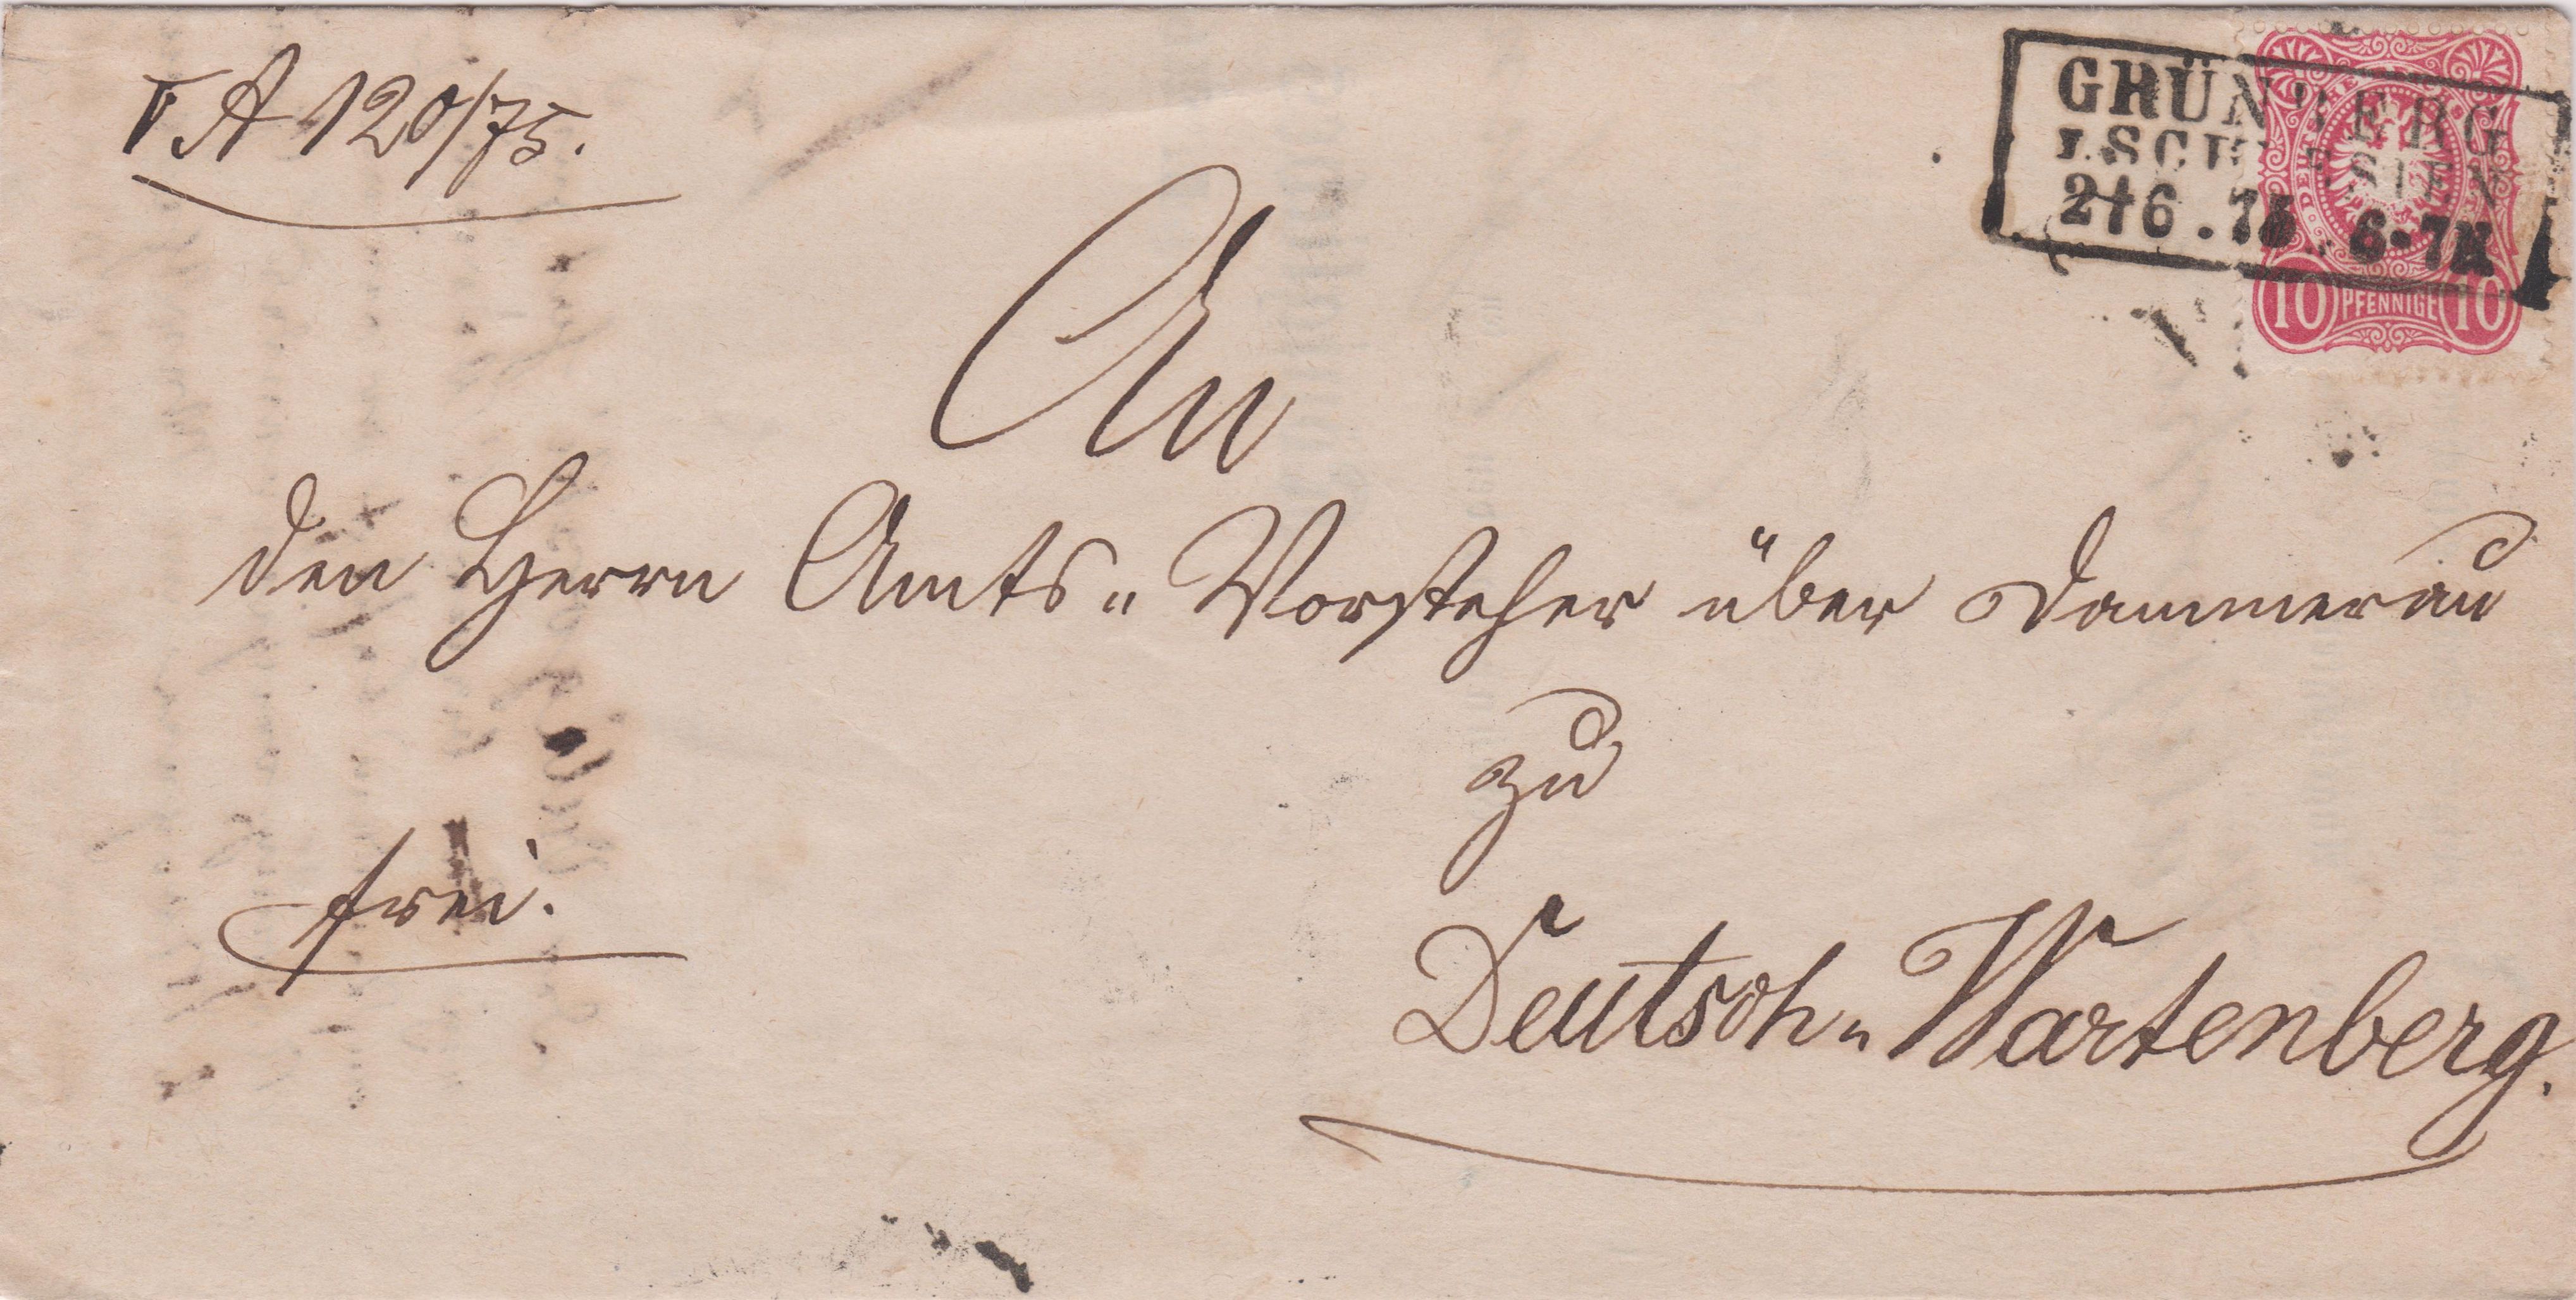 V A 120/75.
GRÜNBERG
I. SCHLESIEN
2 6 . 75 6-7 N
10 PFENNIGE 10
An
den Herrn Amts-Vorsteher über Dammerau
zu
frei.
Deutsch-Wartenberg.